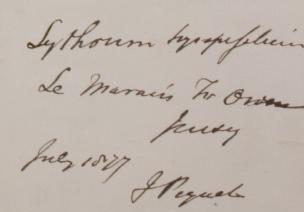 Lythrum hyssopifolium
Le Marais St Ouen
Jersey
July 1877
J Piquet